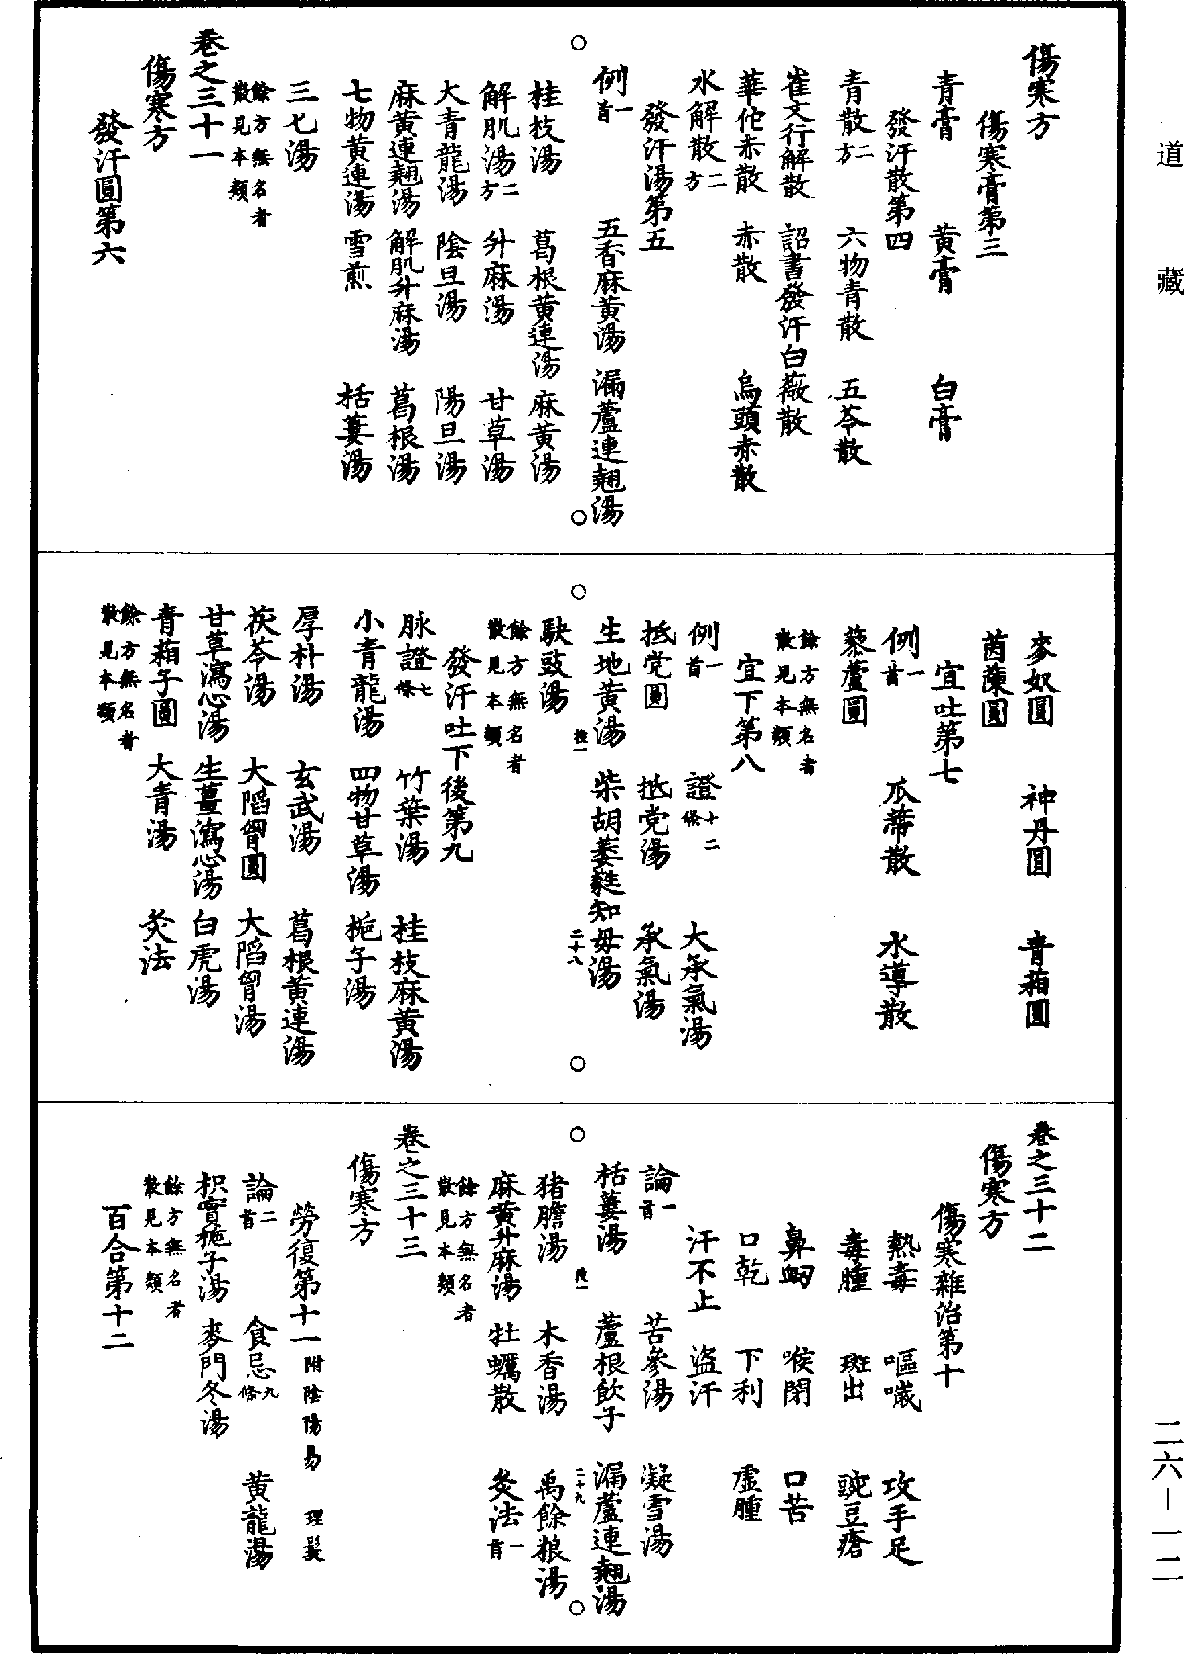 道藏
傷寒方
傷寒膏第三
青膏 黃膏 白膏
發汗散第四
青散二方 六物青散 五苓散
崔文行解散 詔書發汗白薇散
華佗赤散 赤散 烏頭赤散
水解散二方
發汗湯第五
例一首 五香麻黃湯 漏蘆連翹湯
桂枝湯 葛根黃連湯 麻黃湯
解肌湯二方 升麻湯 甘草湯
大青龍湯 陰旦湯 陽旦湯
麻黃連翹湯 解肌升麻湯 葛根湯
七物黃連湯 雪煎 栝蔞湯
三七湯
餘方無名者
散見本類
卷之三十一
傷寒方
發汗圓第六
麥奴圓 神丹圓 青葙圓
茵蔯圓
宜吐第七
例一首 瓜蒂散 水導散
藜蘆圓
餘方無名者
散見本類
宜下第八
例一首 證十二條 大承氣湯
抵党圓 抵党湯 承氣湯
生地黃湯 柴胡萎蕤知母湯
陸一 二十八
䭿豉湯
餘方無名者
散見本類
發汗吐下後第九
脉證七條 竹葉湯 桂枝麻黃湯
小青龍湯 四物甘草湯 梔子湯
厚朴湯 玄武湯 葛根黃連湯
茯苓湯 大陷胷圓 大陷胷湯
甘草瀉心湯 生薑瀉心湯 白虎湯
青葙子圓 大青湯 灸法
餘方無名者
散見本類
卷之三十二
傷寒方
傷寒雜治第十
熱毒 嘔噦 攻手足
毒腫 斑出 豌豆瘡
鼻衂 喉閉 口苦
口乾 下利 虛腫
汗不止 盜汗
論一首 苦參湯 凝雪湯
栝蔞湯 蘆根飲子 漏蘆連翹湯
陸一 二十九
猪膽湯 木香湯 禹餘粮湯
麻黃升麻湯 牡蠣散 灸法一首
餘方無名者
散見本類
卷之三十三
傷寒方
勞復第十一附陰陽易 理髮
論二首 食忌九條 黃龍湯
枳實梔子湯 麥門冬湯
餘方無名者
散見本類
百合第十二
二六—一二